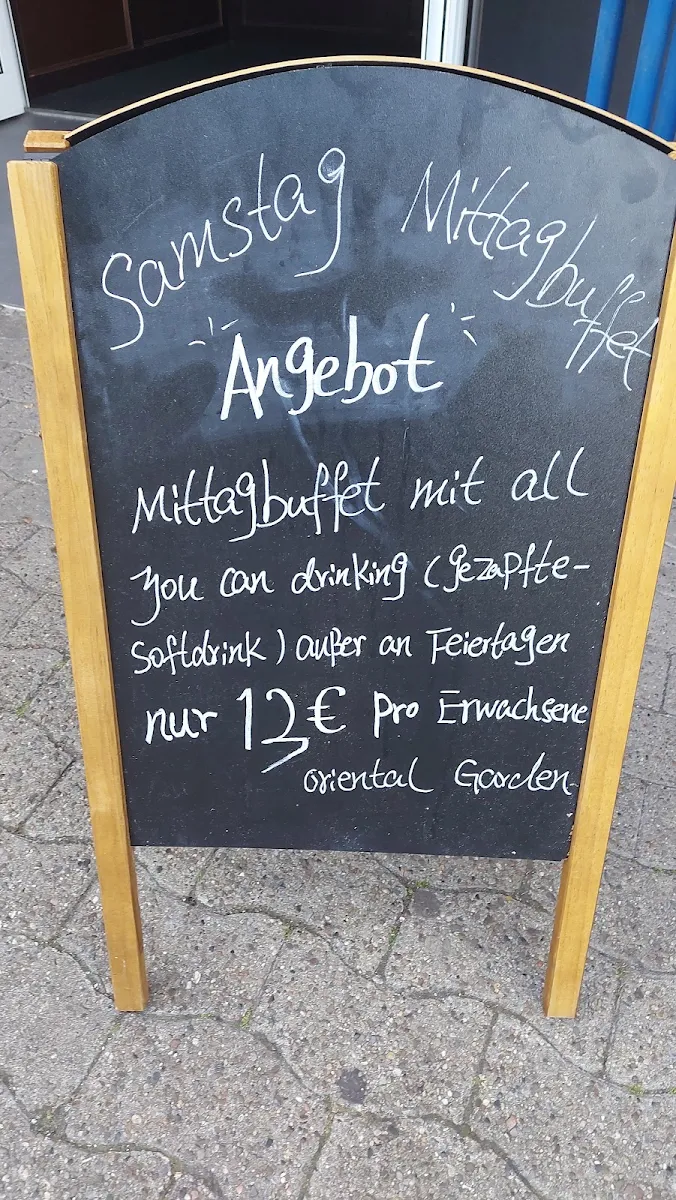 Samstag Mittagbuffet
Angebot
Mittagbuffet mit all
you can drinking (gezapfte-
softdrink) außer an Feiertagen
nur 12€ pro Erwachsene
oriental Garden